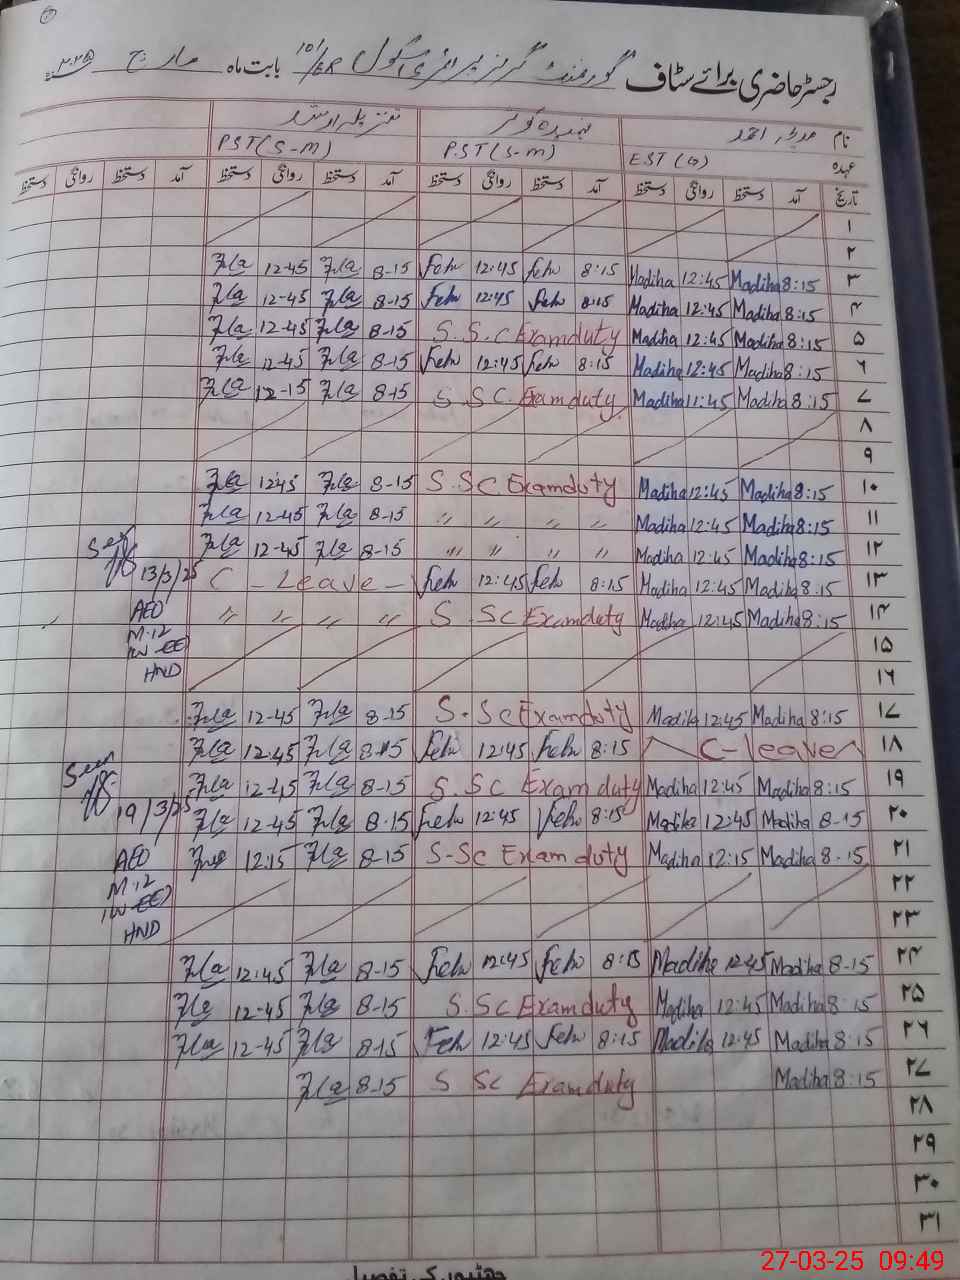 رجسٹر حاضری برائے سٹاف گورنمنٹ گرلز پرائمری سکول 101/ER بابت ماہ مارچ ۲۰۲۵
نام مدیحہ احمد
عہدہ EST (G) P.ST (S-m) PST (S-m)
تاریخ آمد دستخط روانگی دستخط آمد دستخط روانگی دستخط آمد دستخط روانگی دستخط آمد دستخط روانگی دستخط
۱
۲
۳ 8:15 Madiha 12:45 Madiha 8:15 Feh 12:45 Feh 8-15 12-45
۴ 8:15 Madiha 12:45 Madiha 8:15 Feh 12:45 Feh 8-15 12-45
۵ 8:15 Madiha 12:45 Madiha S.S.C Exam duty 8-15 12-45
۶ 8:15 Madiha 12:45 Madiha 8:15 Feh 12:45 Feh 8-15 12-45
۷ 8:15 Madiha 11:45 Madiha S.SC. Exam duty 8-15 12-15
۸
۹
۱۰ 8:15 Madiha 12:45 Madiha S.SC. Exam duty 8-15 12-45
۱۱ 8:15 Madiha 12:45 Madiha " " " " 8-15 12-45
۱۲ 8:15 Madiha 12:45 Madiha " " " " 8-15 12-45
Seen
۱۳ 8:15 Madiha 12:45 Madiha 8:15 Feh 12:45 Feh C - Leave - 13/3/25
۱۴ 8:15 Madiha 12:45 Madiha S.SC Exam duty " " " " AEO
۱۵ M-12
۱۶ HND
۱۷ 8:15 Madiha 12:45 Madiha S.SC Exam duty 8-15 12-45
۱۸ C-leave 8:15 Feh 12:45 Feh 8-15 12-45
Seen
۱۹ 8:15 Madiha 12:45 Madiha S.SC Exam duty 8-15 12-45
۲۰ 8-15 Madiha 12:45 Madiha 8:15 Feh 12:45 Feh 8-15 12-45 19/3/25
۲۱ 8-15 Madiha 12:15 Madiha S-SC Exam duty 8-15 12:15 AEO
۲۲ M-12
۲۳ HND
۲۴ 8-15 Madiha 12:45 Madiha 8:15 Feh 12:45 Feh 8-15 12:45
۲۵ 8:15 Madiha 12:45 Madiha S.SC Exam duty 8-15 12-45
۲۶ 8:15 Madiha 12:45 Madiha 8:15 Feh 12:45 Feh 8-15 12-45
۲۷ 8:15 Madiha S SC Exam duty 8-15
۲۸
۲۹
۳۰
۳۱
چھٹیوں کی تفصیل
27-03-25 09:49